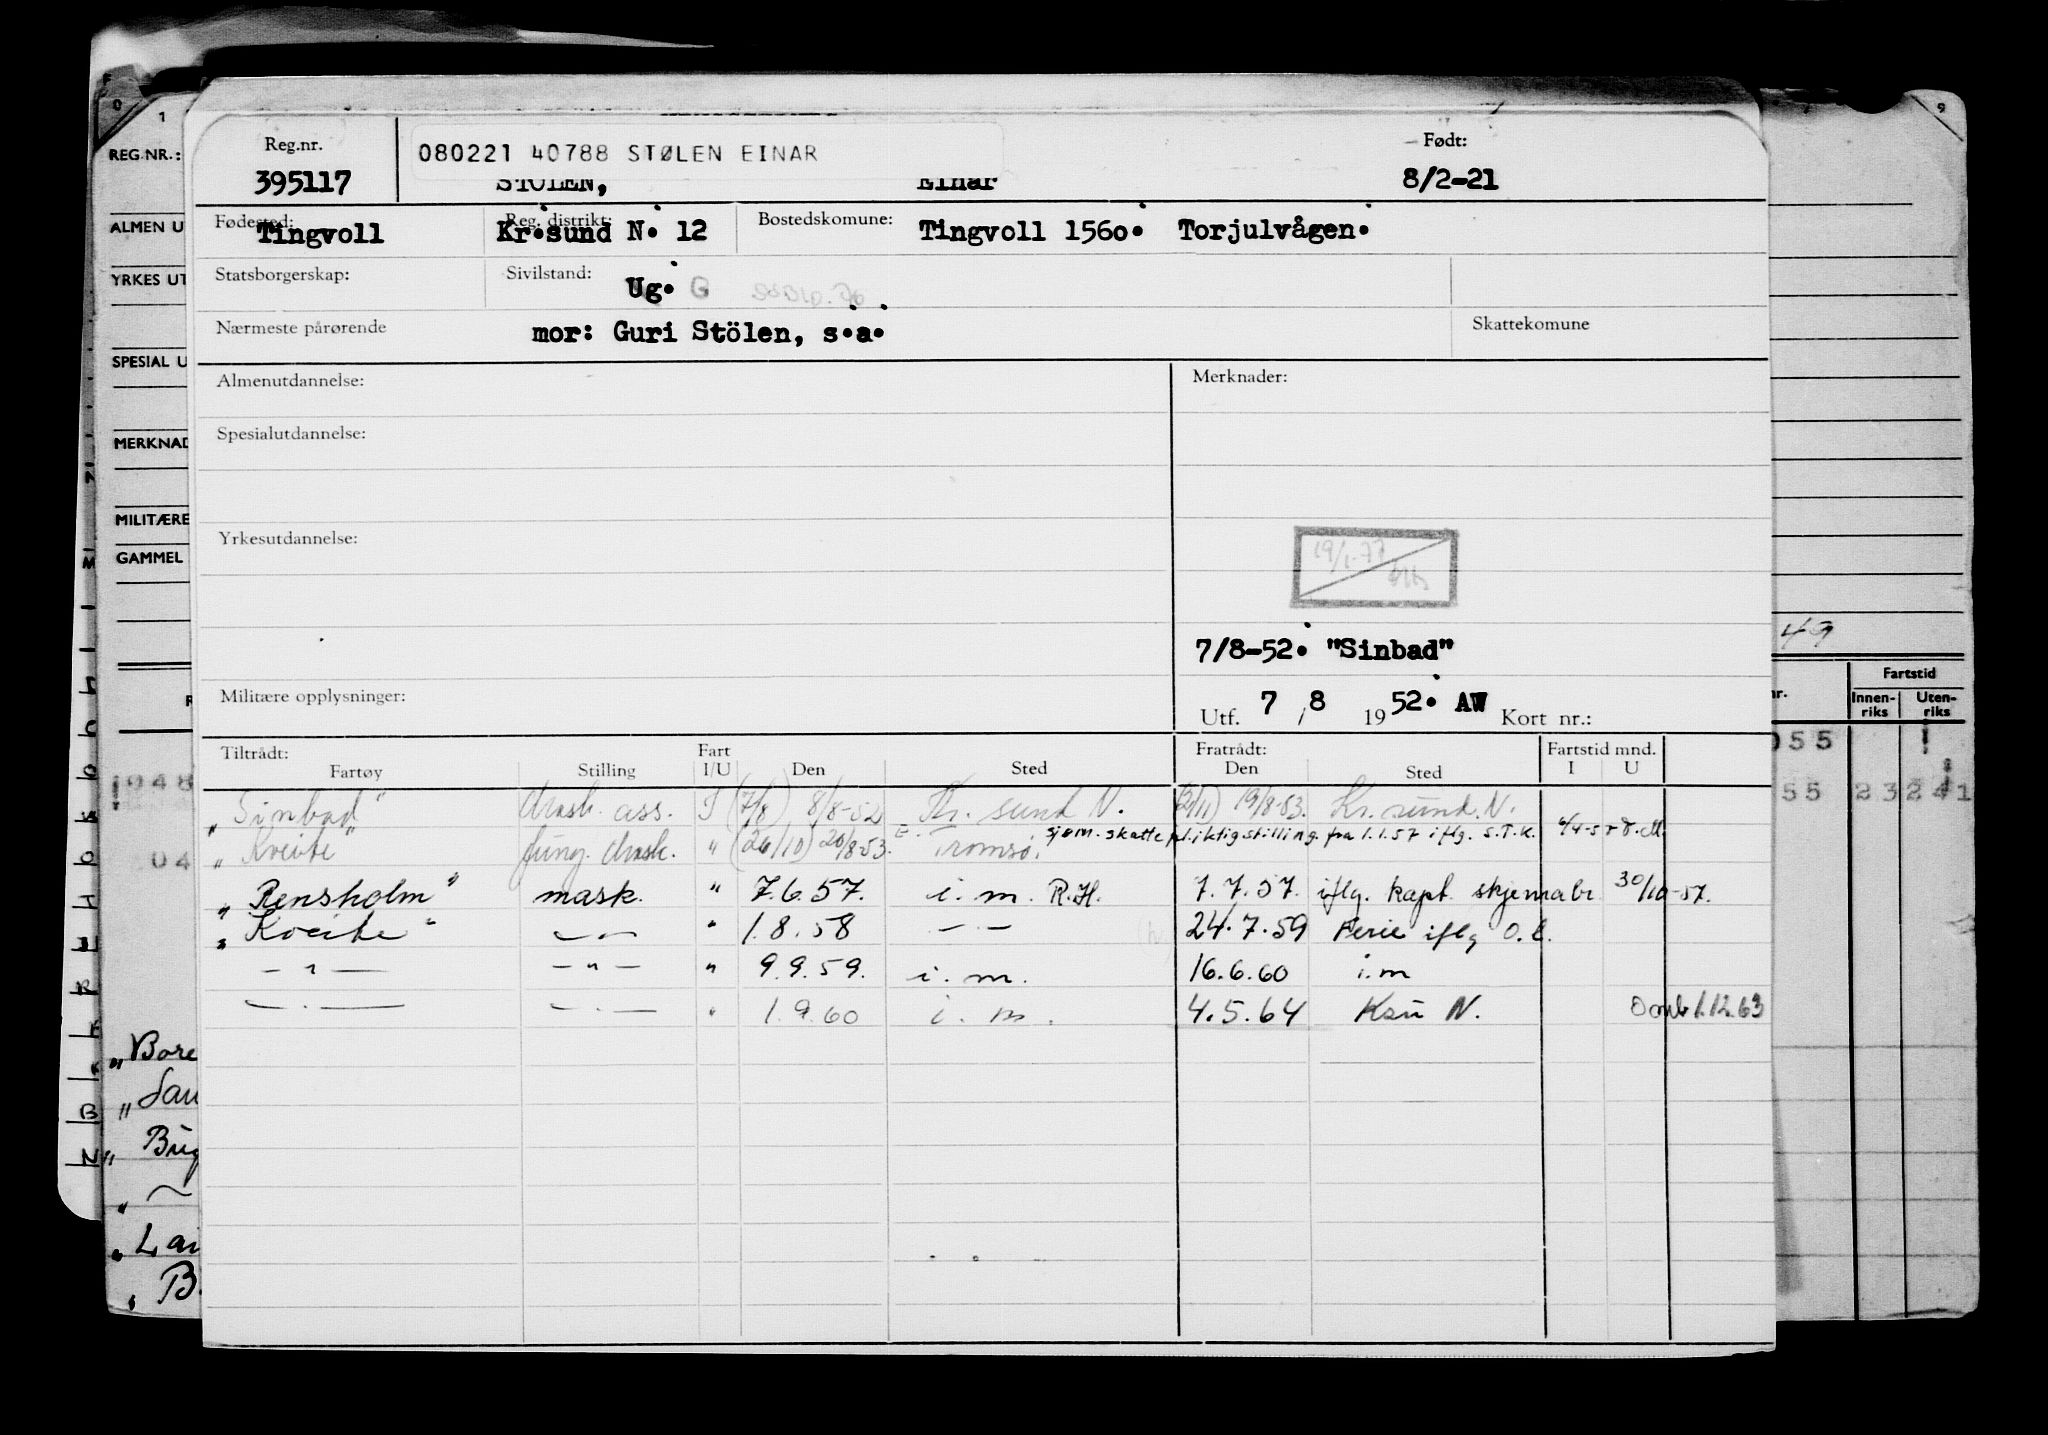 Reg.nr. 080221 40788 STØLEN EINAR Født:
395117 STÖLEN, Einar 8/2-21
Fødested: Reg. distrikt: Bostedskomune:
Tingvoll Kr.sund N. 12 Tingvoll 156o. Torjulvågen.
Statsborgerskap: Sivilstand: Ug. G
Nærmeste pårørende mor: Guri Stölen, s.a. Skattekomune
Almenutdannelse: Merknader:
Spesialutdannelse:
Yrkesutdannelse:
19/1-77
7/8-52. "Sinbad"
Militære opplysninger: Utf. 7 / 8 19 52. AW Kort nr.:
Tiltrådt: Fart Fratrådt: Fartstid mnd.
Fartøy Stilling I/U Den Sted Den Sted I U
"Sinbad" mask. ass. I (7/8) 8/8-52 Kr. sund N. 19/8-53. Kr. sund. N.
sjøm. skattepliktig stilling. fra 1.1.57 iflg. S.T.K.
"Kveite" fung. mask. " (26/10) 20/8-53. Tromsø.
"Rensholm" mask. " 7.6.57. i. m. R.H. 7.7.57. iflg. kapt. skjema br. 30/10-57.
"Kveite" — " — " 1.8.58 — " — 24.7.59 Ferie iflg O.l.
— " — — " — " 9.9.59. i. m. 16.6.60 i.m
— " — — " — " 1.9.60 i. m. 4.5.64 Ksu N. Omb 1.12.63
0 1 9
REG.NR.:
ALMEN U
YRKES UT
SPESIAL U
MERKNAD
MILITÆRE
GAMMEL
49
Fartstid
nr. Innen-riks Uten-riks
055
1948 55 23 241
04
"Bore
"
"
"
"
B.